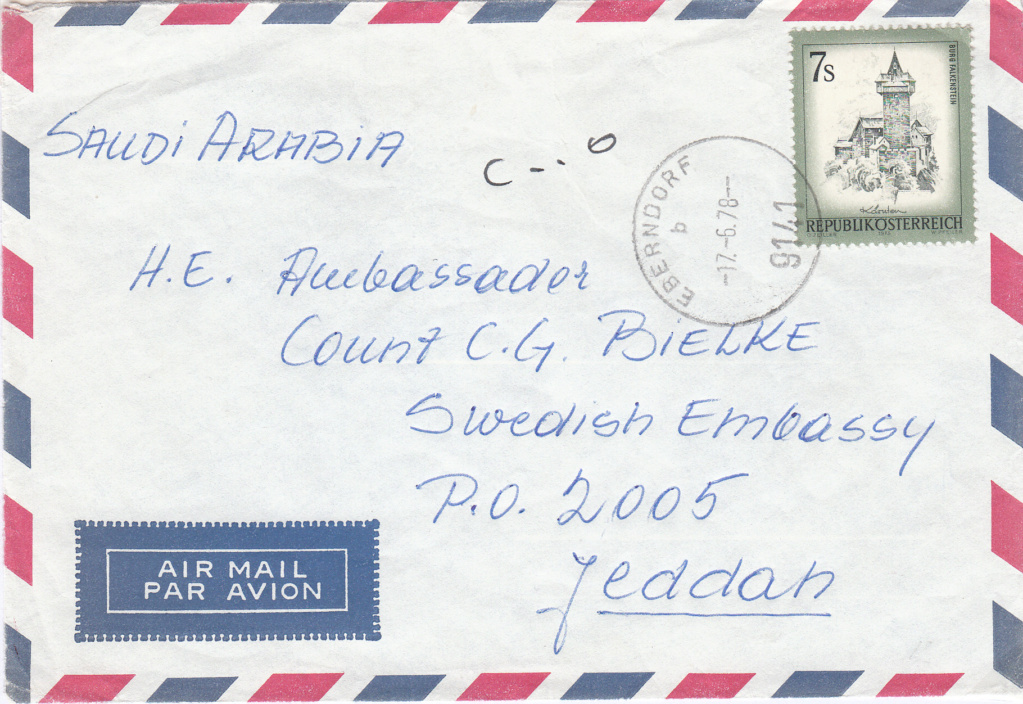 7s
BURG FALKENSTEIN
REPUBLIK ÖSTERREICH
EBERNDORF
b
-17.-6.78--
9141
SAUDi ARABiA
H.E. Ambassador
Count C.G. BiELKE
Swedish Embassy
P.O. 2005
Jeddah
AIR MAIL
PAR AVION